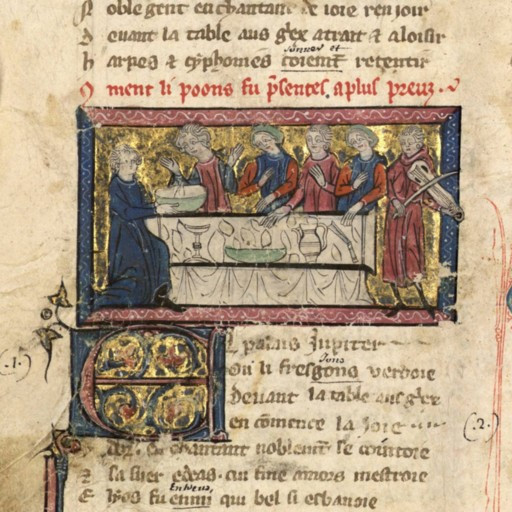 oble gent en chantant de ioie
D euant la table aus grex atrait & aloisir
sonner et
h arpes & cyphonies retentir
ment li poons fu p̃sentes. a plus preuz.
El palais Jupiter
Jons
Ou li fresgons verdoie
(.1.)
Deuant la table aus grex
en cōmence la ioie
(.2.)
en chantant noblem̄t se cointoie
& sa suer edeas. cui fine amors mestroie
E fu enmi qui bel si esbanoie